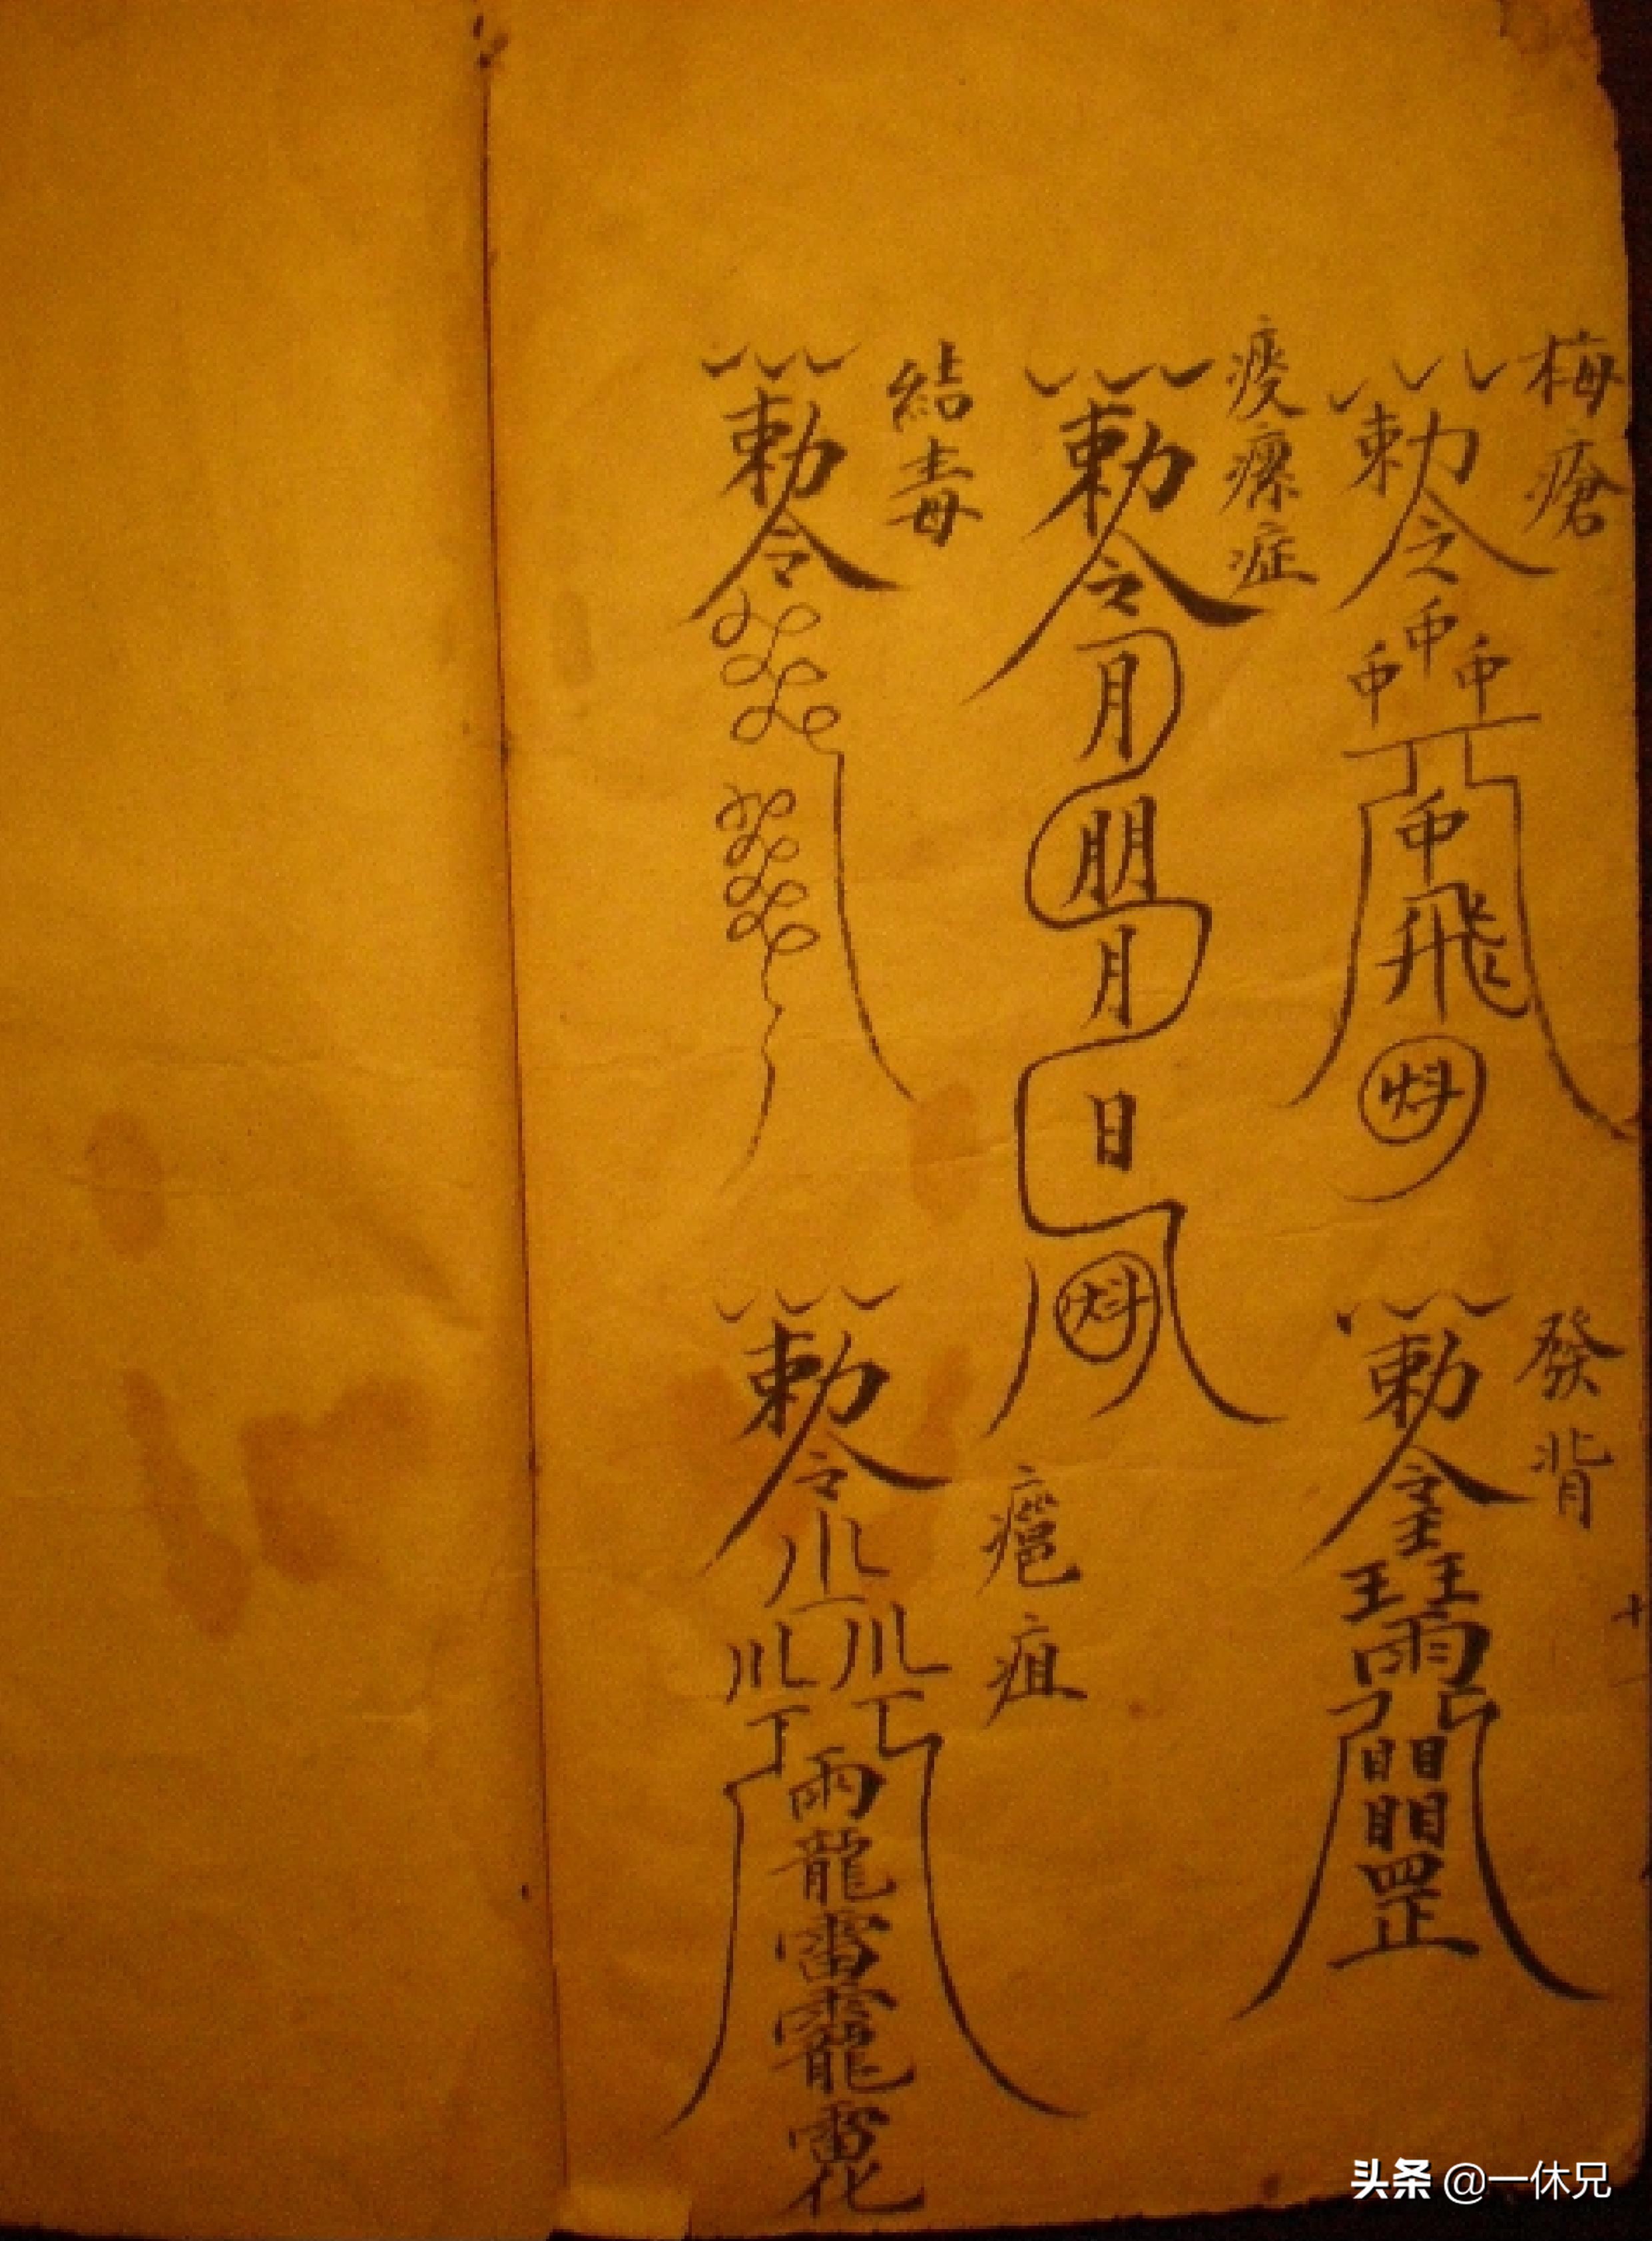 梅瘡
勅令
申申申
申飛
炓
痰瘰症
勅令
月
朋
月
日
炓
結毒
勅令
發背
勅令
王王王
雨
目目
目目
罡
疽
勅令
雨龍雷
龍雷化
头条 @一休兄